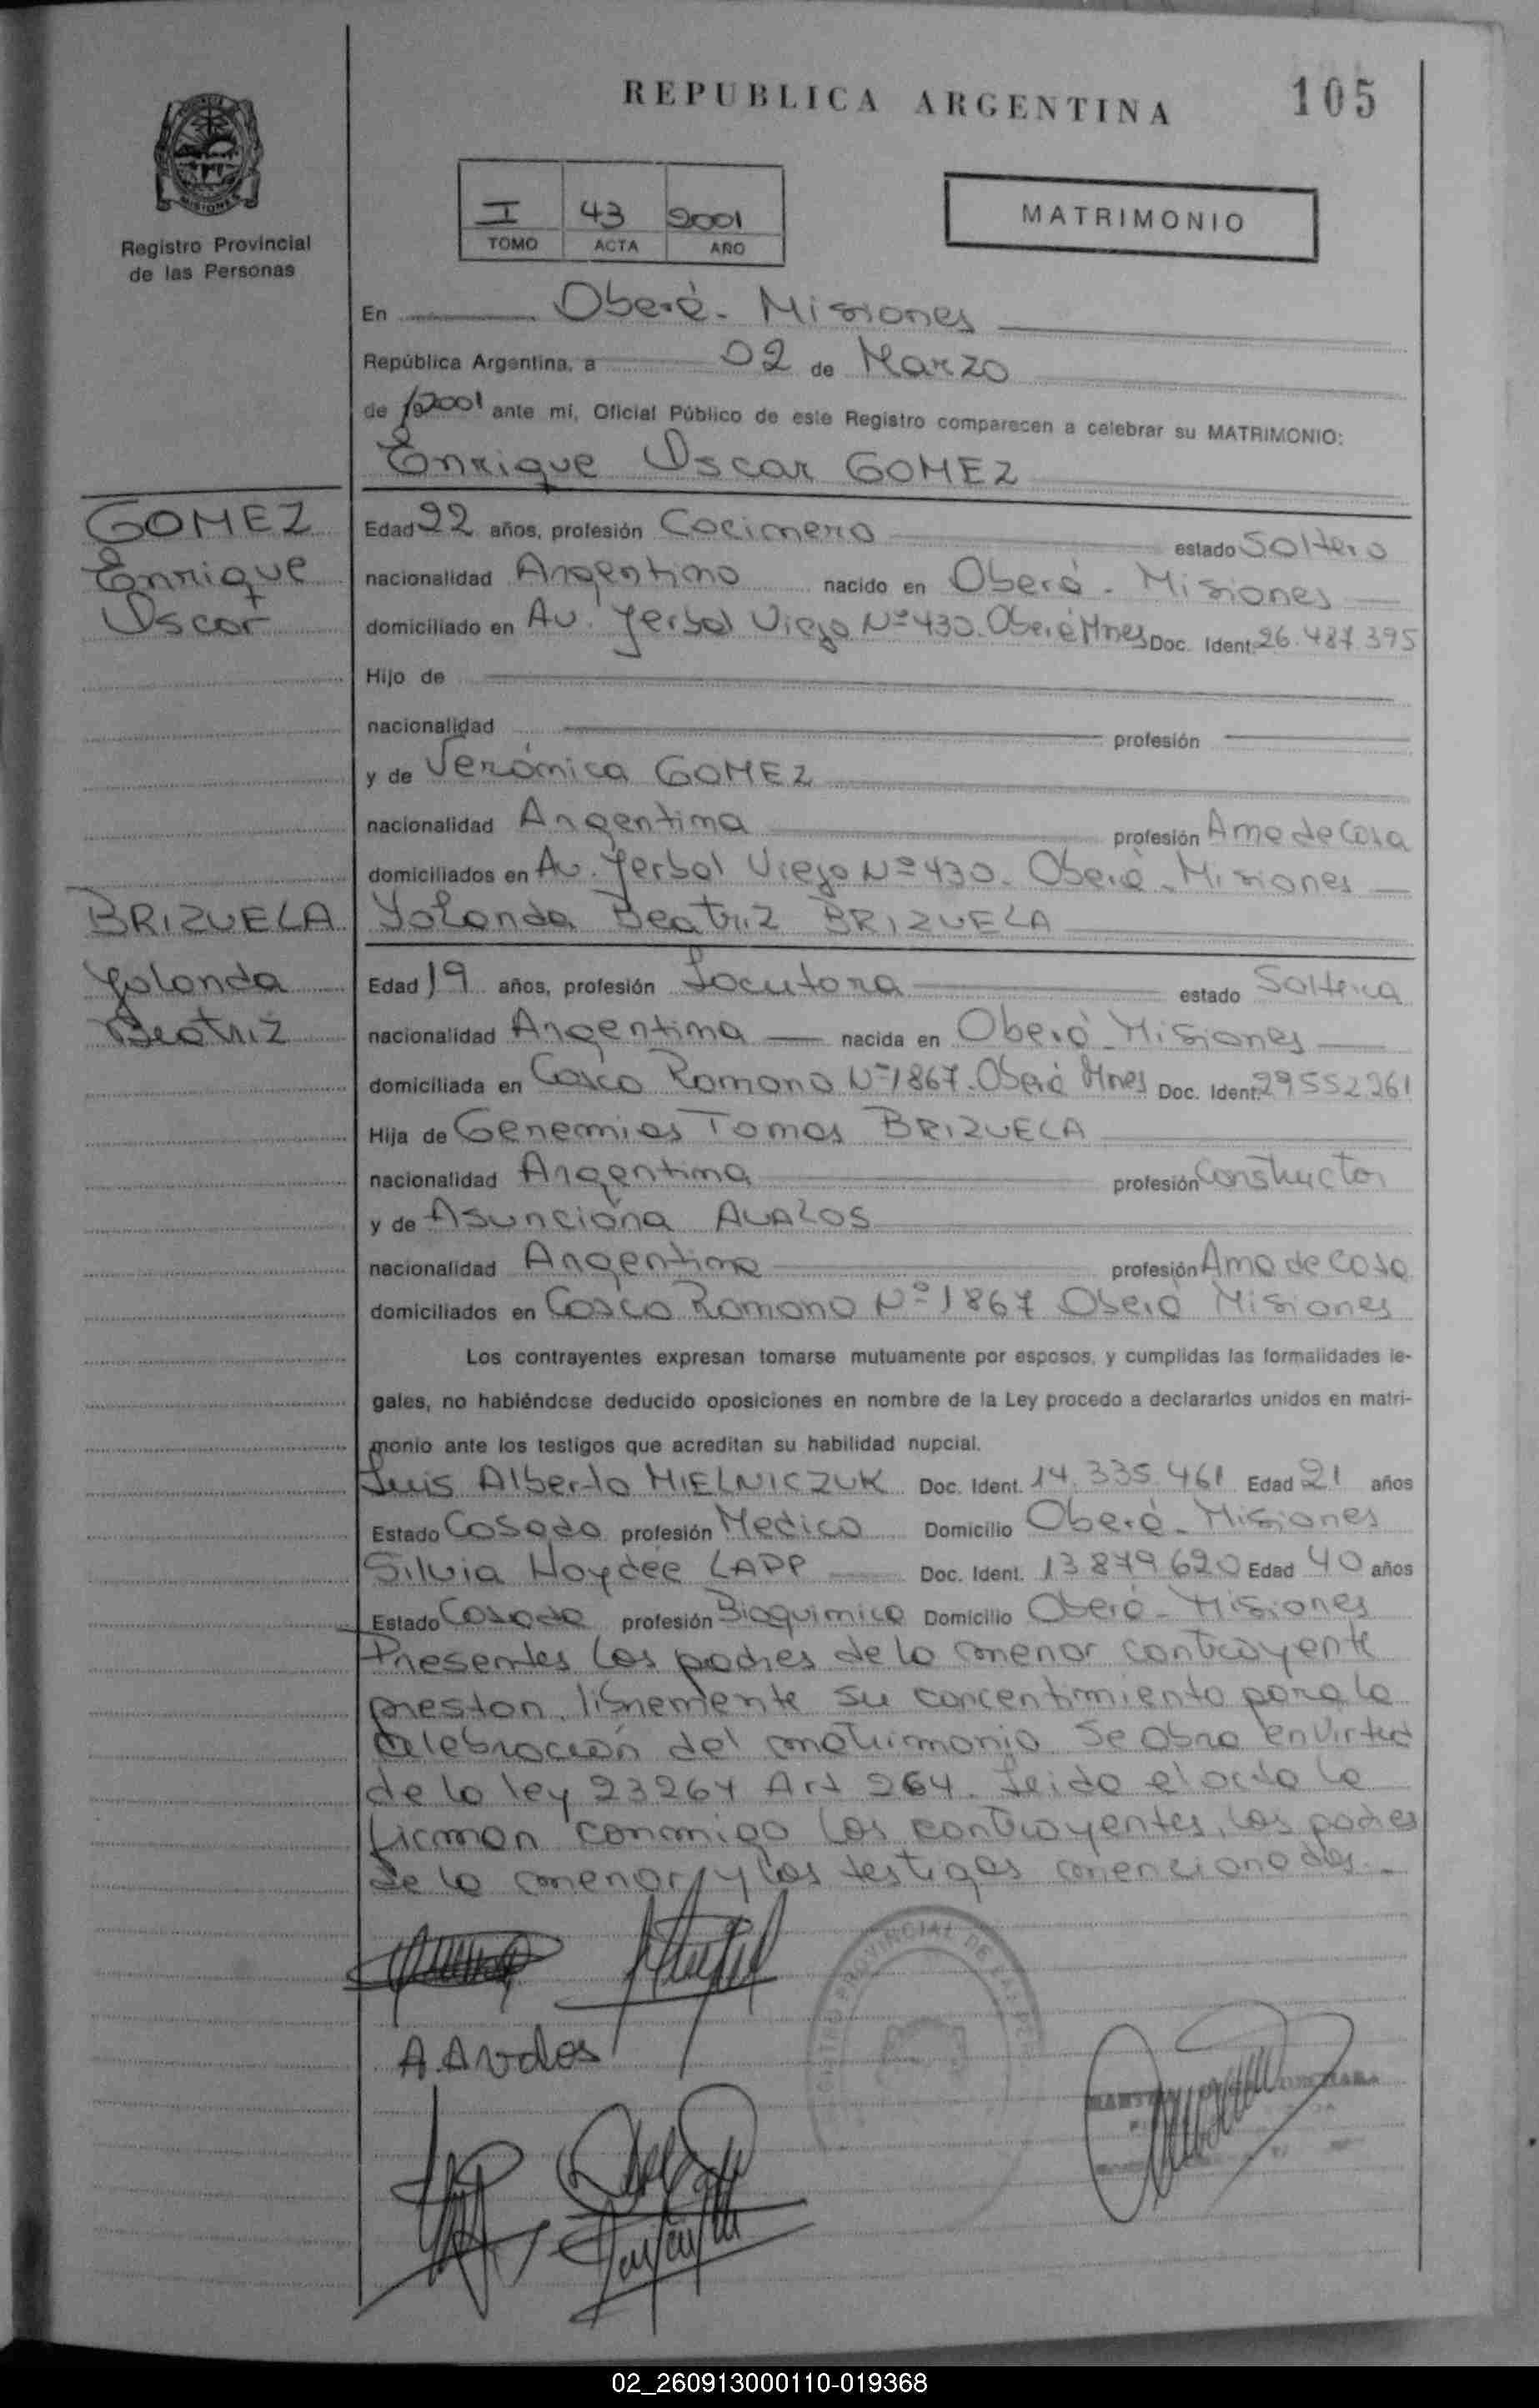 REPUBLICA ARGENTINA 105
MISIONES
Registro Provincial
de las Personas
I 43 2001
TOMO ACTA AÑO
MATRIMONIO
En Oberá - Misiones
República Argentina, a 02 de Marzo
de 2001 ante mí, Oficial Público de este Registro comparecen a celebrar su MATRIMONIO:
Enrique Oscar GOMEZ
GOMEZ
Enrique
Oscar
Edad 22 años, profesión Cocinero estado Soltero
nacionalidad Argentino nacido en Oberá - Misiones
domiciliado en Av. Yerbal Viejo Nº 430. Oberá Mnes Doc. Ident. 26.487.395
Hijo de
nacionalidad profesión
y de Verónica GOMEZ
nacionalidad Argentina profesión Ama de Casa
domiciliados en Av. Yerbal Viejo Nº 430. Oberá - Misiones
BRIZUELA
Yolanda
Beatriz
Yolanda Beatriz BRIZUELA
Edad 19 años, profesión Locutora estado Soltera
nacionalidad Argentina nacida en Oberá - Misiones
domiciliada en Casco Romano Nº 1867. Oberá Mnes Doc. Ident. 29552261
Hija de Genemias Tomas BRIZUELA
nacionalidad Argentina profesión Constructor
y de Asunciona AVALOS
nacionalidad Argentina profesión Ama de Casa
domiciliados en Casco Romano Nº 1867 Oberá Misiones
Los contrayentes expresan tomarse mutuamente por esposos, y cumplidas las formalidades le-
gales, no habiéndose deducido oposiciones en nombre de la Ley procedo a declararlos unidos en matri-
monio ante los testigos que acreditan su habilidad nupcial.
Luis Alberto MIELNICZUK Doc. Ident. 14.335.461 Edad 21 años
Estado Casado profesión Medico Domicilio Oberá - Misiones
Silvia Haydée LAPP Doc. Ident. 13879620 Edad 40 años
Estado Casada profesión Bioquimica Domicilio Oberá - Misiones
Presentes los padres de la menor contrayente
prestan libremente su concentimiento para la
celebración del matrimonio. Se obra en virtud
de la ley 23264 Art 264. Leida el acta la
firman conmigo los contrayentes, los padres
de la menor y los testigos mencionados.-
A. Avalos
02_260913000110-019368